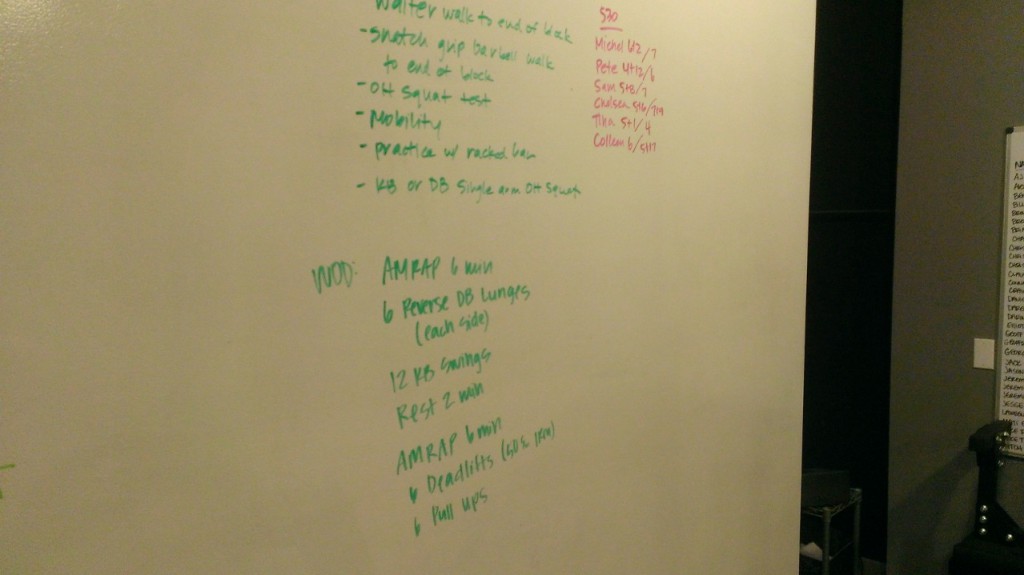 walter walk to end of block
- snatch grip barbell walk
to end of block
- OH squat test
- Mobility
- practice w/ racked bar
- KB or DB single arm OH Squat
530
Michel 6+2/7
Pete 4+12/6
Sam 5+8/7
Chelsea
Tina 5+1/4
Colleen 6/5+17
WOD: AMRAP 6 min
6 Reverse DB Lunges
(each side)
12 KB Swings
Rest 2 min
AMRAP 6 min
6 Deadlifts
6 Pull ups